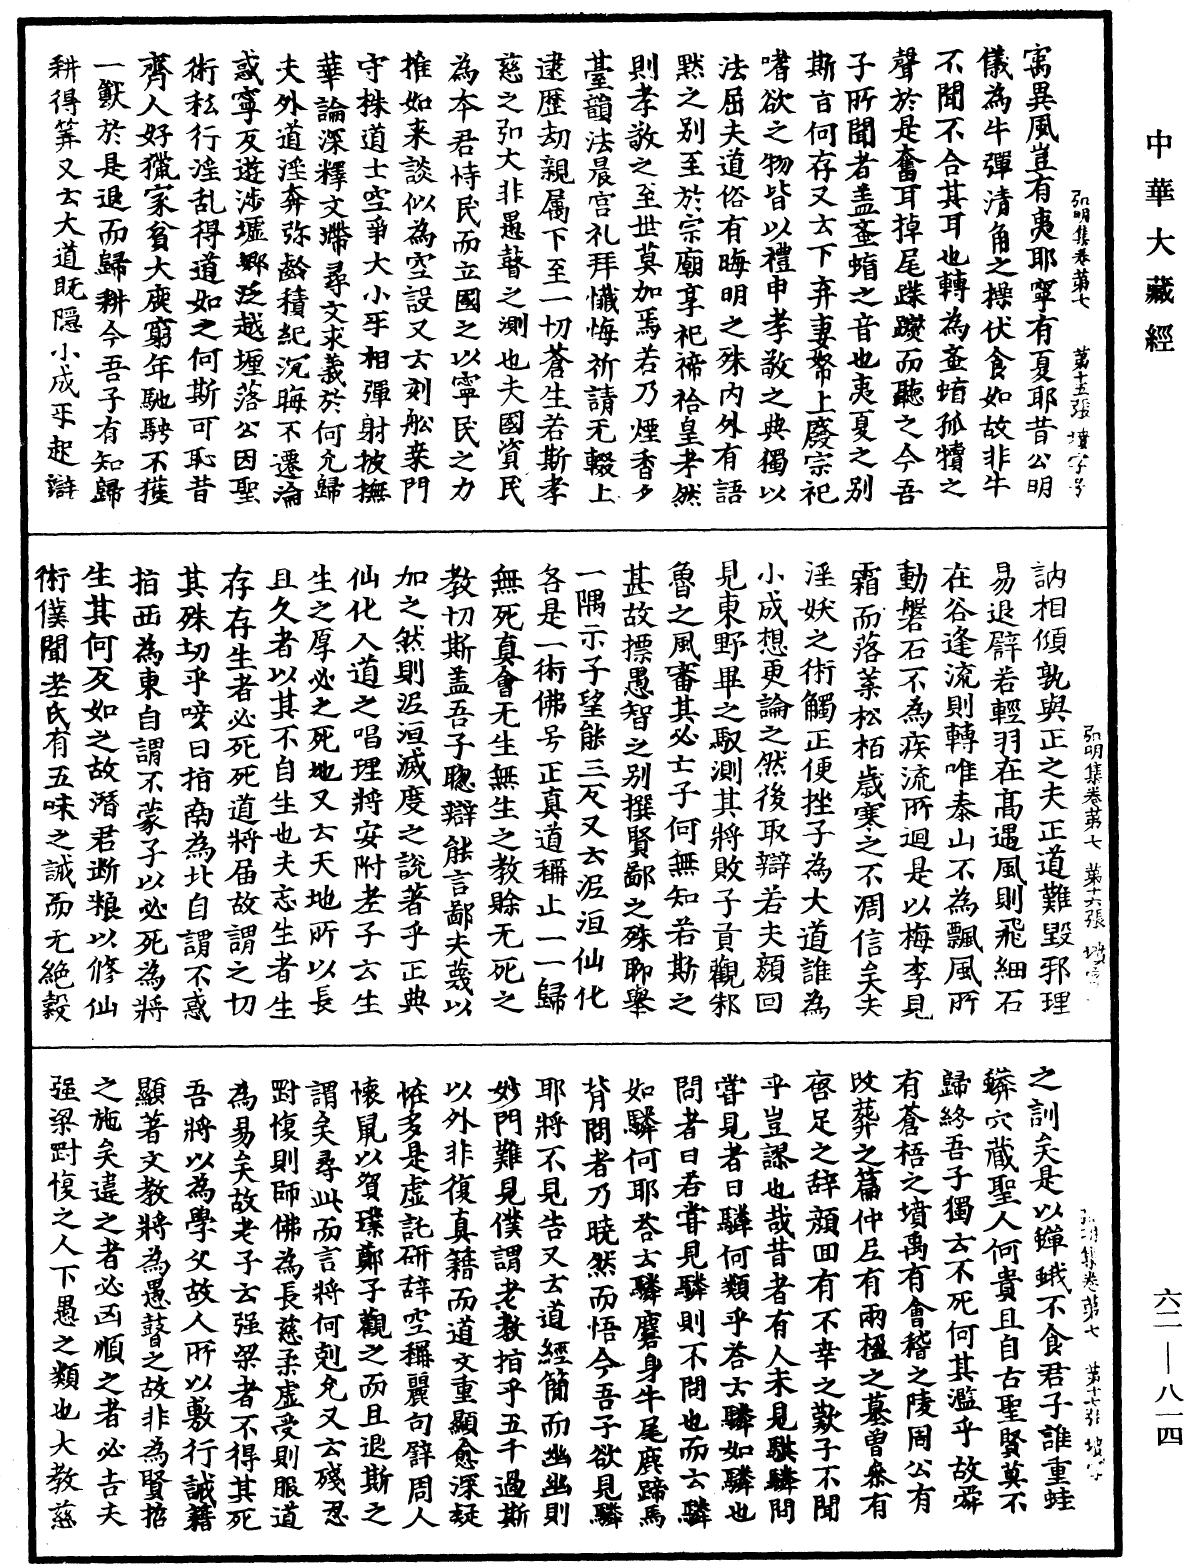 中華大藏經
弘明集卷第七　第十五張　墳字号
寓異風豈有夷耶寧有夏耶昔公明
儀為牛彈清角之操伏食如故非牛
不聞不合其耳也轉為蚉蝱孤犢之
聲於是奮耳掉尾蹀躞而聽之今吾
子所聞者盖蚉蝱之音也夷夏之別
斯旨何存又云下弃妻孥上廢宗祀
嗜欲之物皆以禮申孝敬之典獨以
法屈夫道俗有晦明之殊内外有語
黙之別至於宗廟享祀禘祫皇考然
則孝敬之至世莫加焉若乃煙香夕
臺韻法晨宫礼拜懺悔祈請无輟上
逮歷劫親属下至一切蒼生若斯孝
慈之弘大非愚瞽之測也夫國資民
為本君恃民而立國之以寧民之力
推如来談似為空設又云刻舩桒門
守株道士空爭大小㸦相彈射披撫
華論深釋文滯尋文求義於何允歸
夫外道淫奔弥齡積紀沉晦不遷淪
惑寧反遊涉墟鄉泛越㕓落公因聖
術私行淫乱得道如之何斯可恥昔
齊人好獵家貧犬痩窮年馳騁不獲
一獸於是退而歸耕今吾子有知歸
耕得筭又云大道既隱小成㸦起辯
弘明集卷第七　第十六張
訥相傾孰與正之夫正道難毀邪理
易退譬若輕羽在髙遇風則飛細石
在谷逢流則轉唯泰山不為飄風所
動磐石不為疾流所迴是以梅李見
霜而落葉松栢歲寒之不凋信矣夫
淫妖之術觸正便挫子為大道誰為
小成想更論之然後取辯若夫顔回
見東野畢之馭測其將敗子貢觀邾
魯之風審其必士子何無知若斯之
甚故摽愚智之別撰賢鄙之殊聊舉
一隅示子望能三反又云泥洹仙化
各是一術佛号正真道稱止一一歸
無死真會无生無生之教賒无死之
教切斯盖吾子聦辯能言鄙夫蔑以
加之然則泥洹滅度之說著乎正典
仙化入道之唱理將安附老子云生
生之厚必之死地又云天地所以長
且久者以其不自生也夫忘生者生
存存生者必死死道將届故謂之切
其殊切乎唉曰指南為北自謂不惑
指西為東自謂不蒙子以必死為將
生其何反如之故潛君断粮以修仙
術僕聞老氏有五味之誡而无絶穀
弘明集卷第七　第十七張
之訓矣是以蟬蛾不食君子誰重蛙
蟒穴藏聖人何貴且自古聖賢莫不
歸終吾子獨云不死何其濫乎故舜
有蒼梧之墳禹有會稽之陵周公有
改葬之篇仲尼有兩楹之墓曽叅有
啓足之辞顔回有不幸之歎子不聞
乎豈謬也哉昔者有人未見騏驎問
甞見者曰驎何類乎荅云驎如驎也
問者曰若甞見驎則不問也而云驎
如驎何耶荅云驎麏身牛尾鹿蹄馬
背問者乃曉然而悟今吾子欲見驎
耶將不見告又云道經簡而幽幽則
妙門難見僕謂老教指乎五千過斯
以外非復真籍而道文重顯愈深疑
怪多是虚託研辞空稱麗句譬周人
懷鼠以貿璞鄭子觀之而且退斯之
謂矣尋此而言將何剋允又云殘忍
𠛬愎則師佛為長慈柔虚受則服道
為易矣故老子云强梁者不得其死
吾將以為學父故人所以敷行誡籍
顯著文教將為愚瞽之故非為賢哲
之施矣違之者必凶順之者必吉夫
强梁𠛬愎之人下愚之類也大教慈
六二—八一四